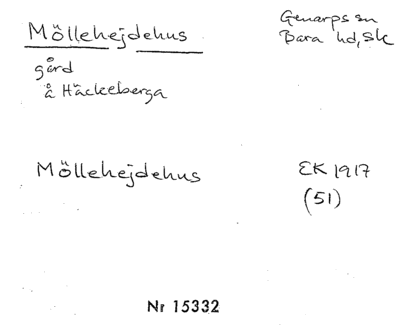 Möllehejdehus
Genarps sn
Bara hd, Sk
gård
å Häckeberga
Möllehejdehus
EK 1917
(51)
Nr 15332